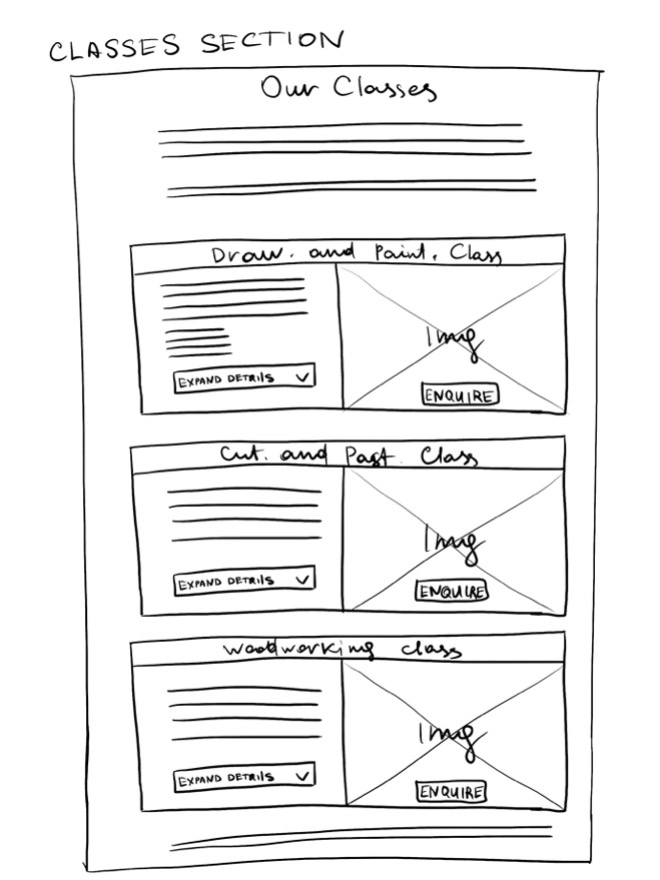 CLASSES SECTION
Our Classes
Draw. and Paint. Class
EXPAND DETAILS
Img
ENQUIRE
Cut. and Past. Class
EXPAND DETAILS
Img
ENQUIRE
Woodworking class
EXPAND DETAILS
Img
ENQUIRE